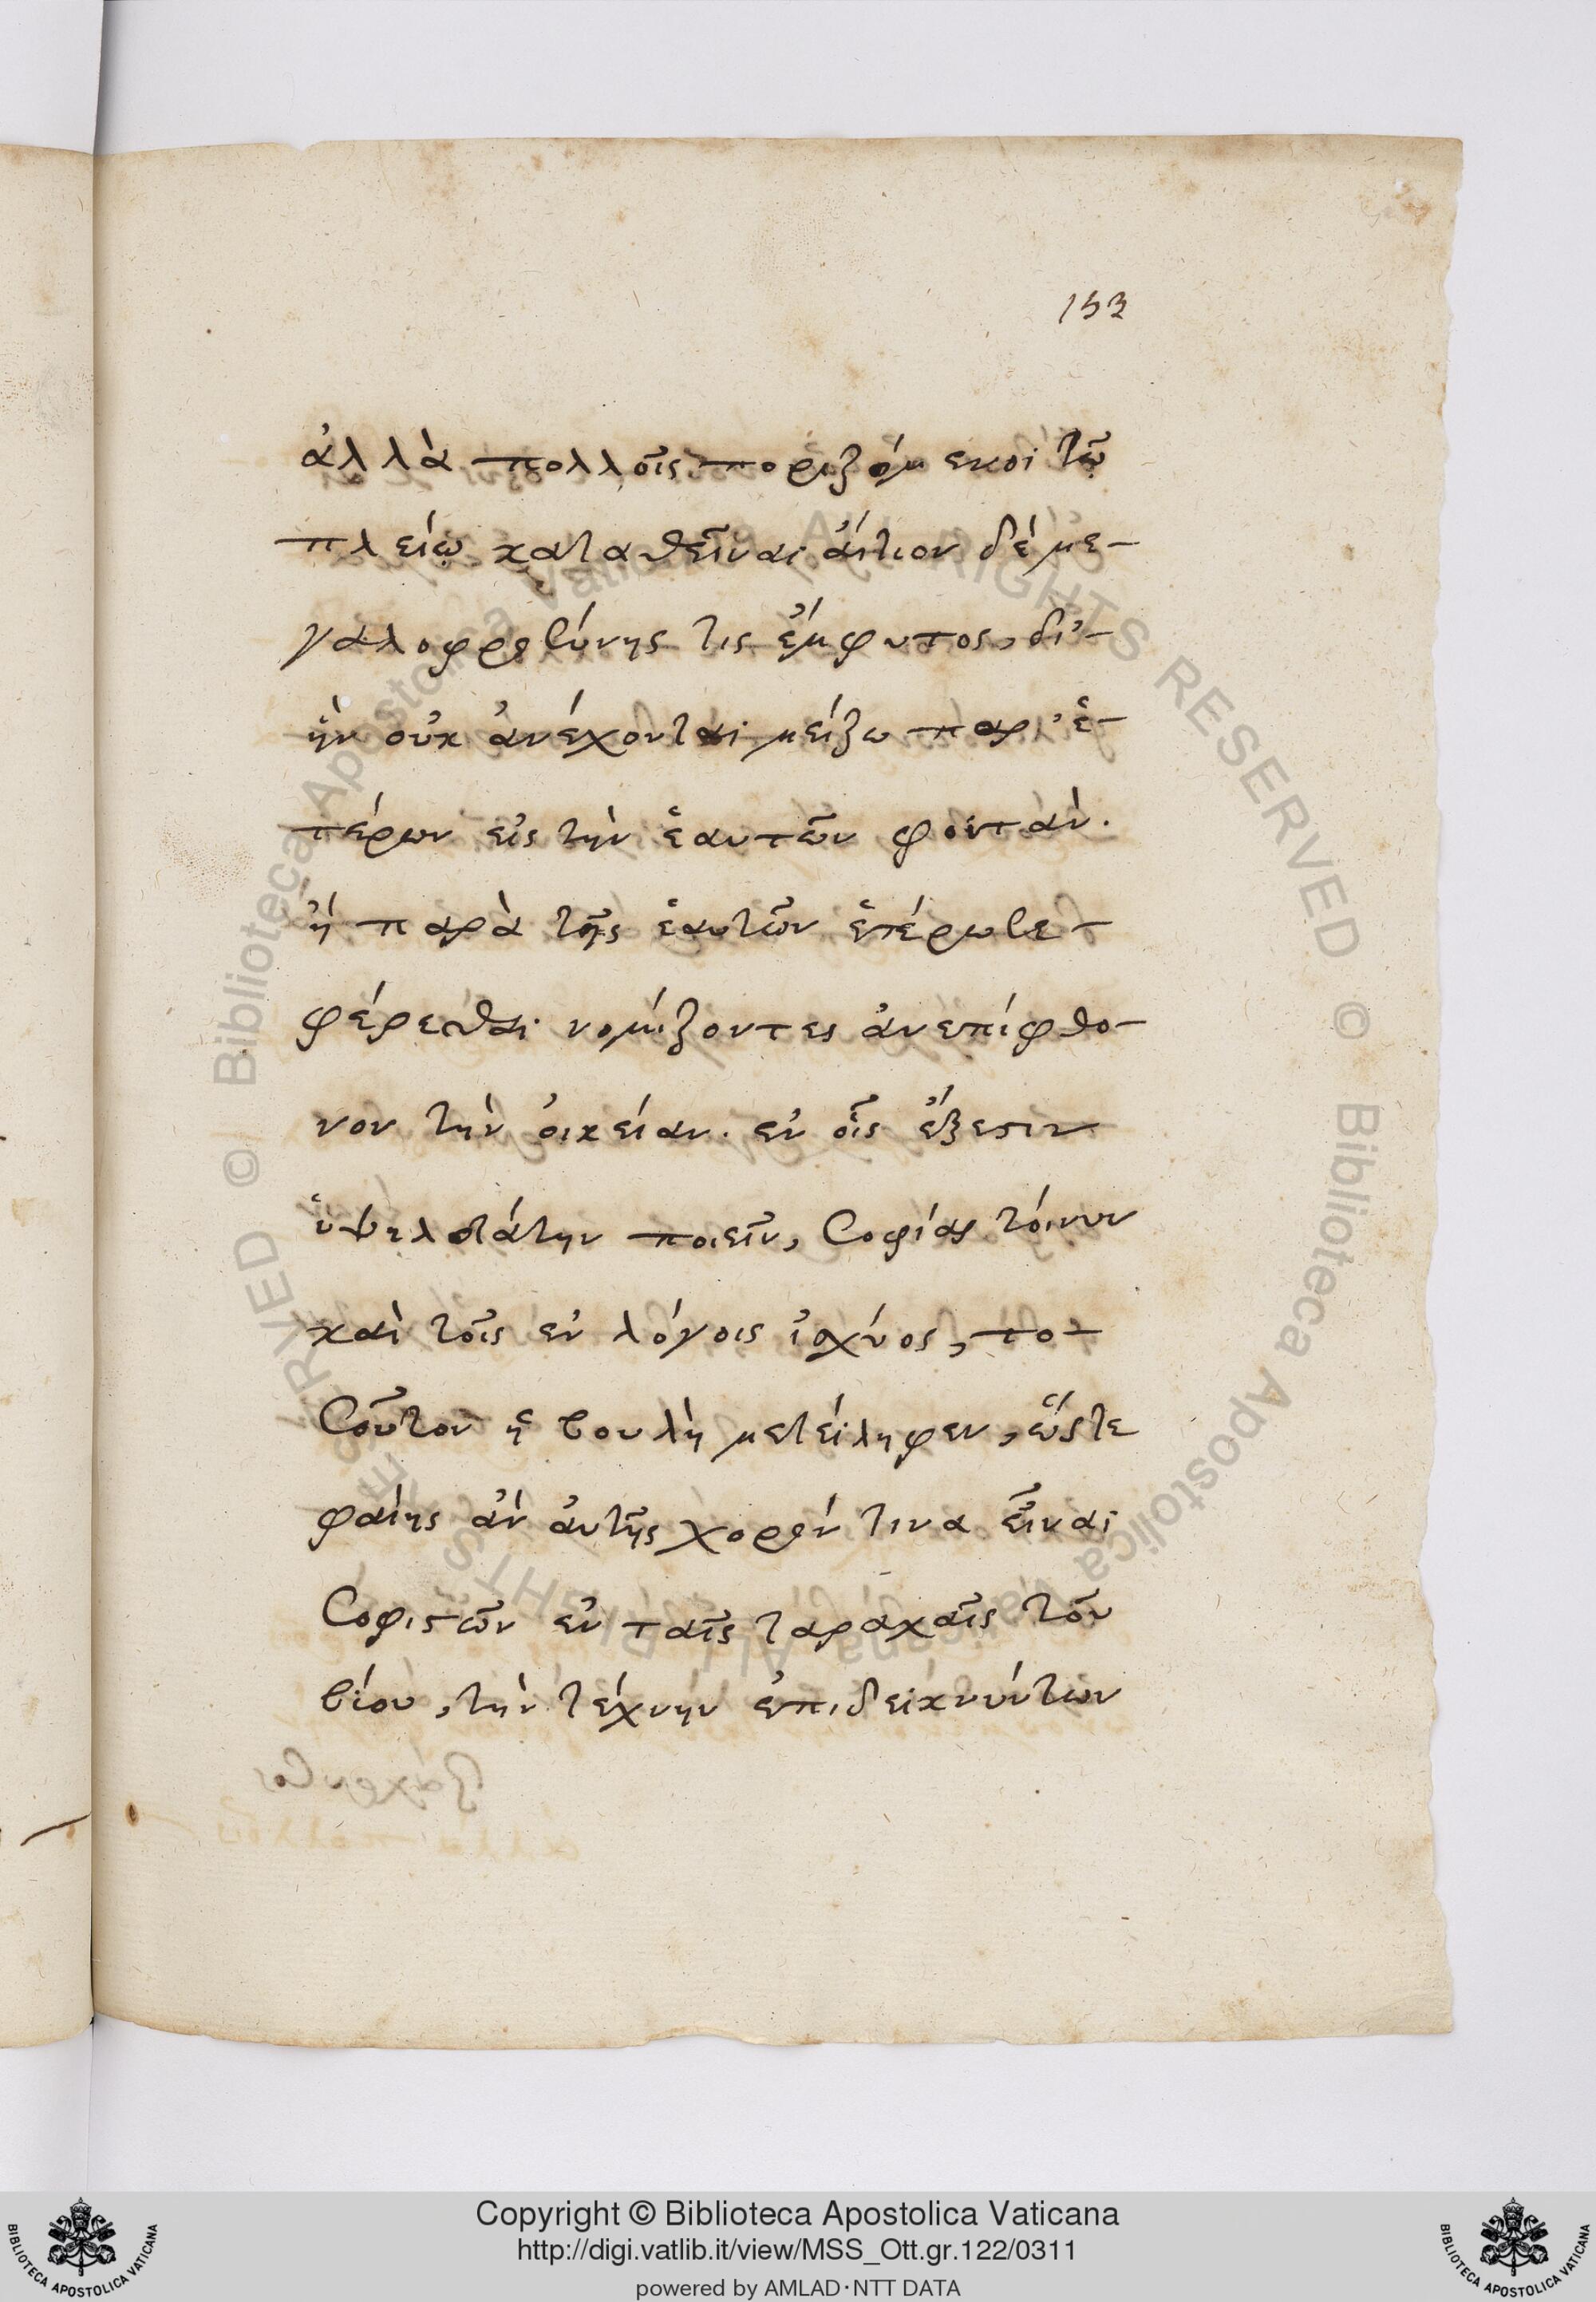 153
ἀλλὰ πολλοῖς ποριζόμενοι τῷ
πλείῳ καταθεῖναι αἴτιον δέ με-
γαλοφροσύνης τις ἔμφυτος, δι'-
ἣν οὐκ ἀνέχονται μείζω παρ' ἑ-
τέρων εἰς τὴν ἑαυτῶν φοιτᾶν.
ἢ παρὰ τῆς ἑαυτῶν ἑτέρωσε-
φέρεσθαι νομίζοντες ἀνεπίφθο-
νον τὴν ὀικείαν. ἐν οἷς ἔξεστιν
ὑψηλοτάτην ποιεῖν, Σοφίας τοίνυν
καὶ τοῖς ἐν λόγοις ἰσχύος, το-
σοῦτον ἡ βουλὴ μετείληφεν, ὥστε
φαίης ἂν ἀυτῆς χορόν τινα εἶναι
Σοφιστῶν ἐν ταῖς ταραχαῖς τοῦ
βίου, τὴν τέχνην ἐπιδεικνύντων
© Biblioteca Apostolica Vaticana ALL RIGHTS RESERVED © Biblioteca Apostolica Vaticana ALL RIGHTS RESERVED
Copyright © Biblioteca Apostolica Vaticana
http://digi.vatlib.it/view/MSS_Ott.gr.122/0311
powered by AMLAD·NTT DATA
BIBLIOTECA APOSTOLICA VATICANA
BIBLIOTECA APOSTOLICA VATICANA